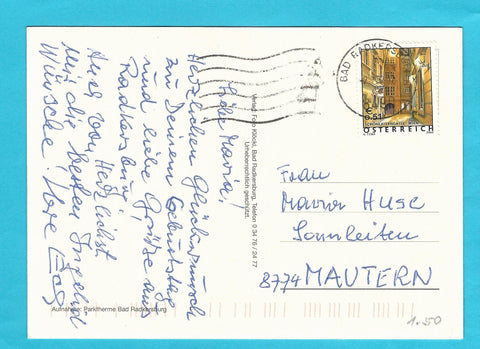 Liebe Maria!
Herzlichen Glückwunsch
zu Deinem Geburtstag
und liebe Grüße aus
Radkersburg.
Herzlichst
mit die besten
Wünsche!
Verlag: Foto Klöckl, Bad Radkersburg, Telefon 0 34 76 / 24 77
Urheberrechtlich geschützt.
Aufnahme: Parktherme Bad Radkersburg
BAD RADKERS
€ 0,51
ÖSTERREICH
Frau
Maria Huse
Sonnleiten
8774 MAUTERN
1.50